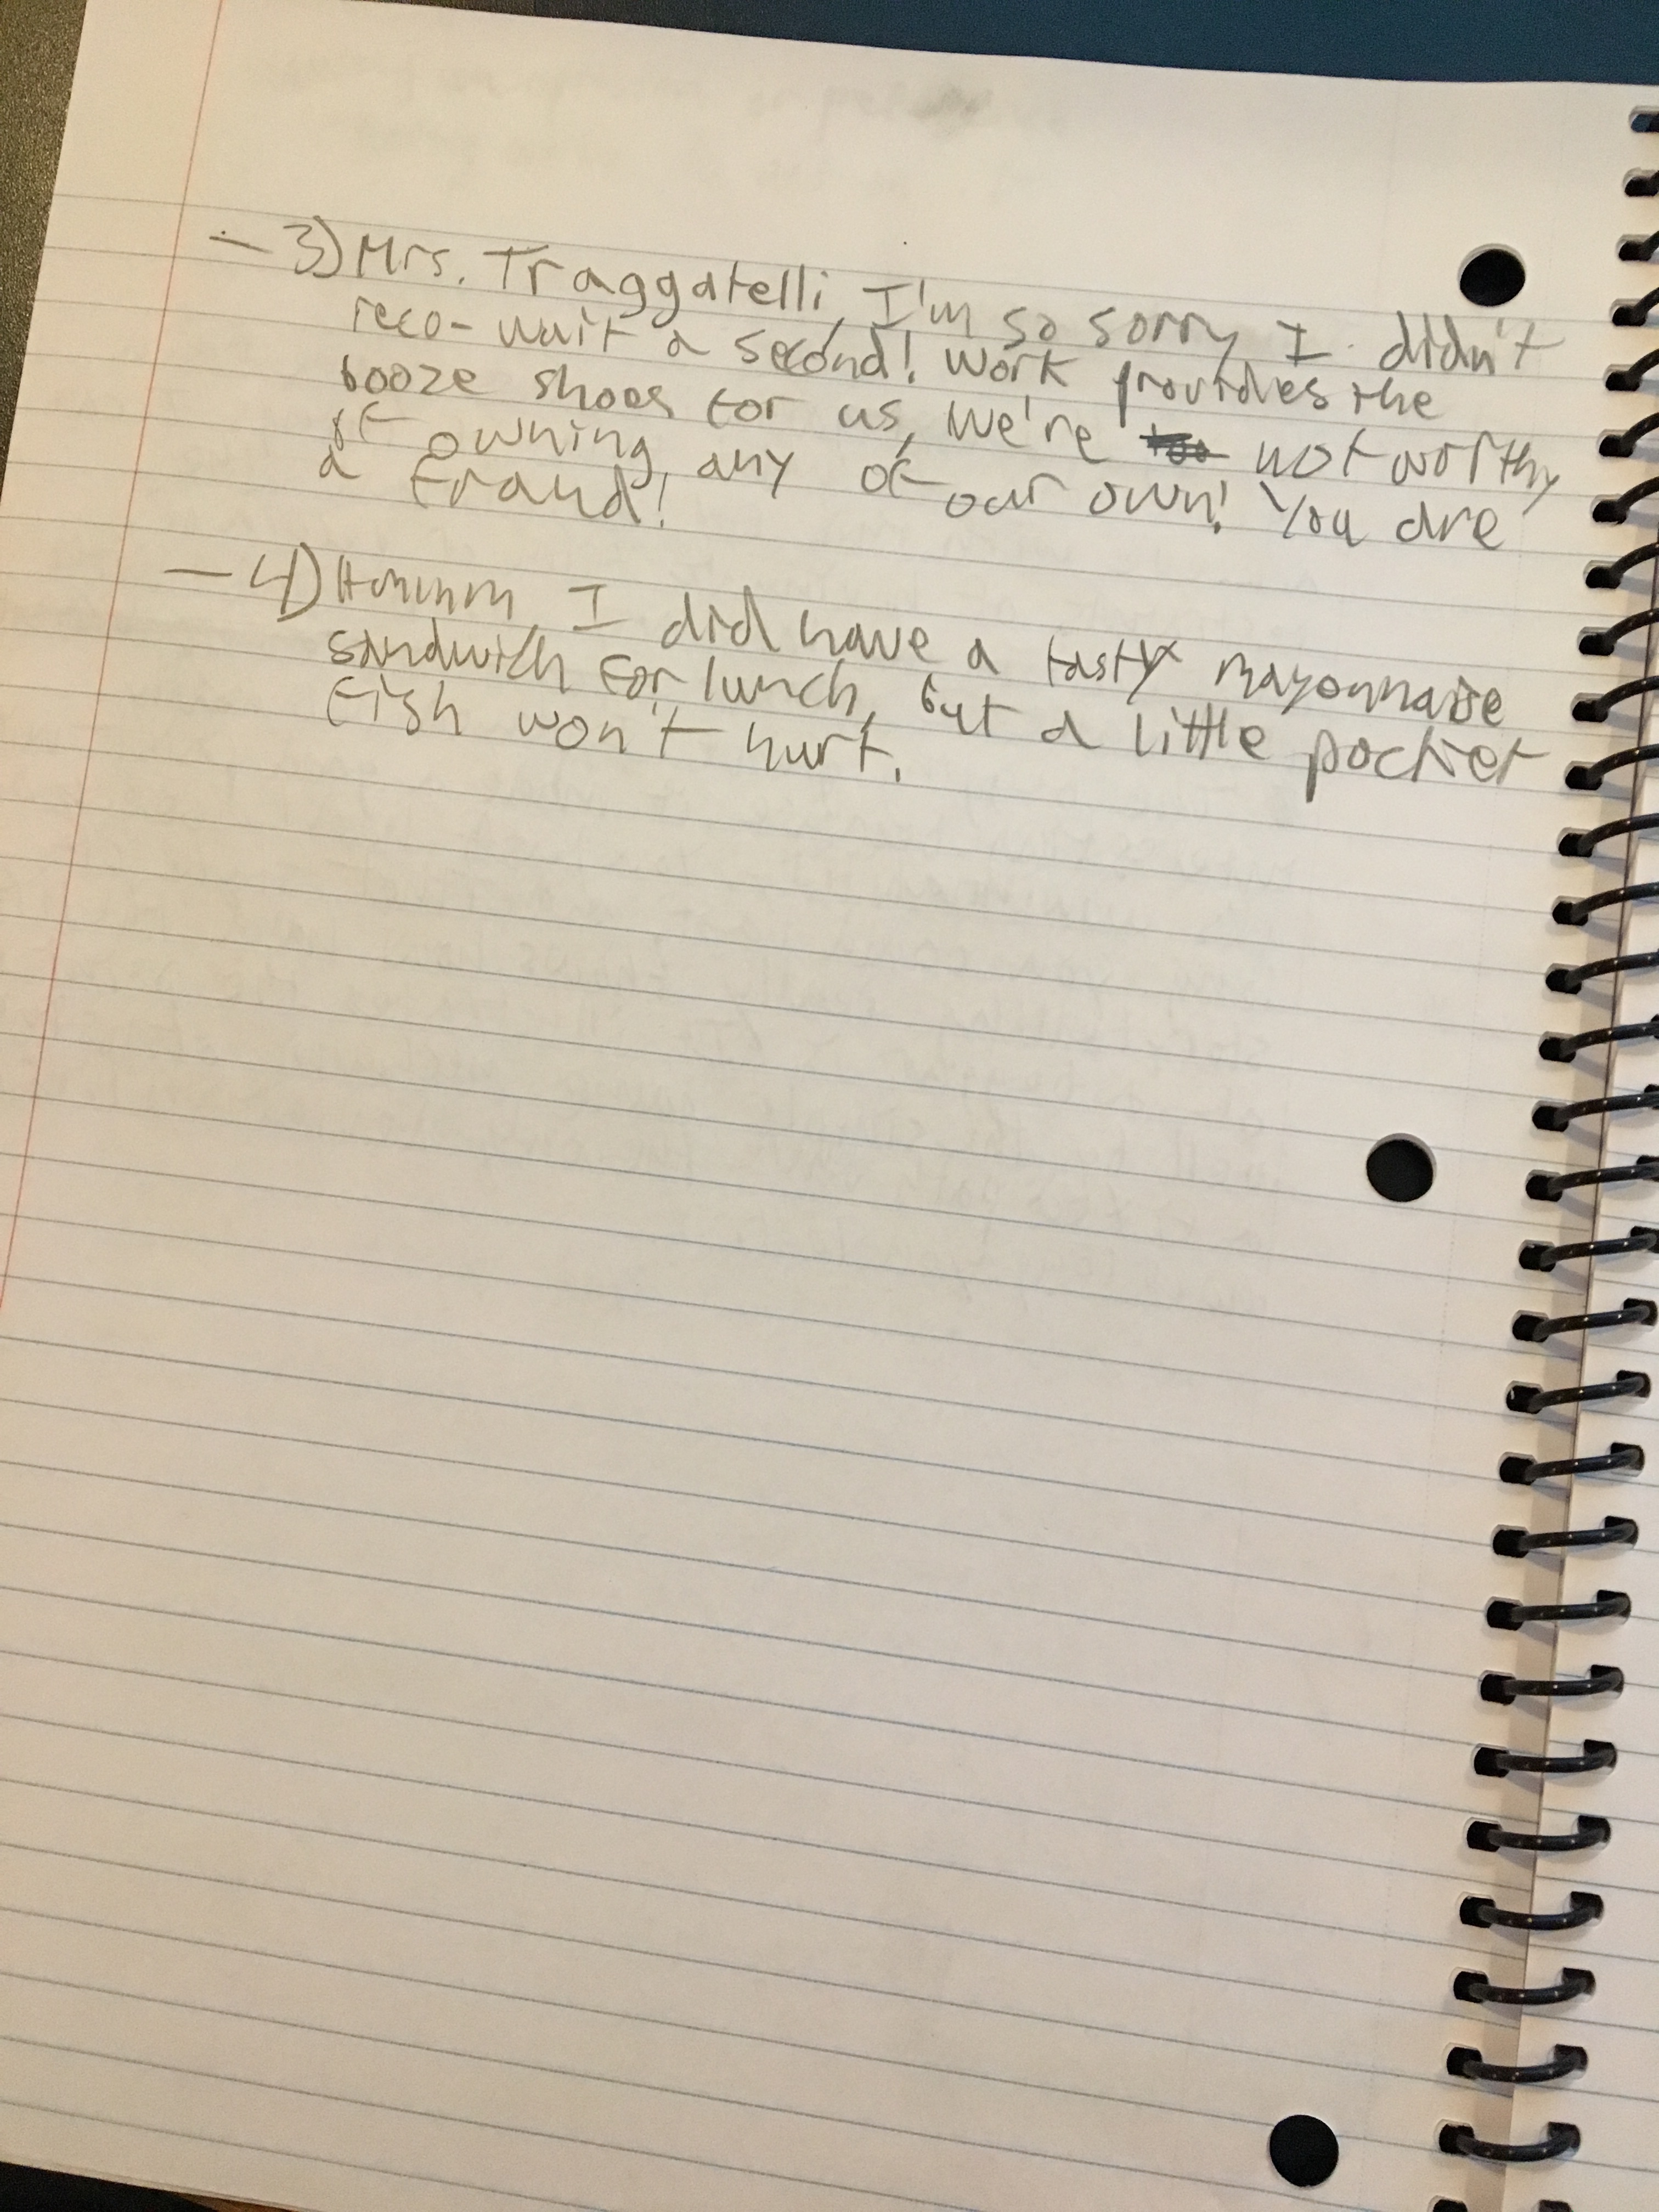 - 3) Mrs. Traggatelli, I'm so sorry, I didn't
reco- wait a second! Work provides the
booze shoes for us, we're not worthy
of owning any of our own! You are
a fraud!
- 4) Hmmm, I did have a tasty mayonnaise
sandwich for lunch, but a little pocket
fish won't hurt.